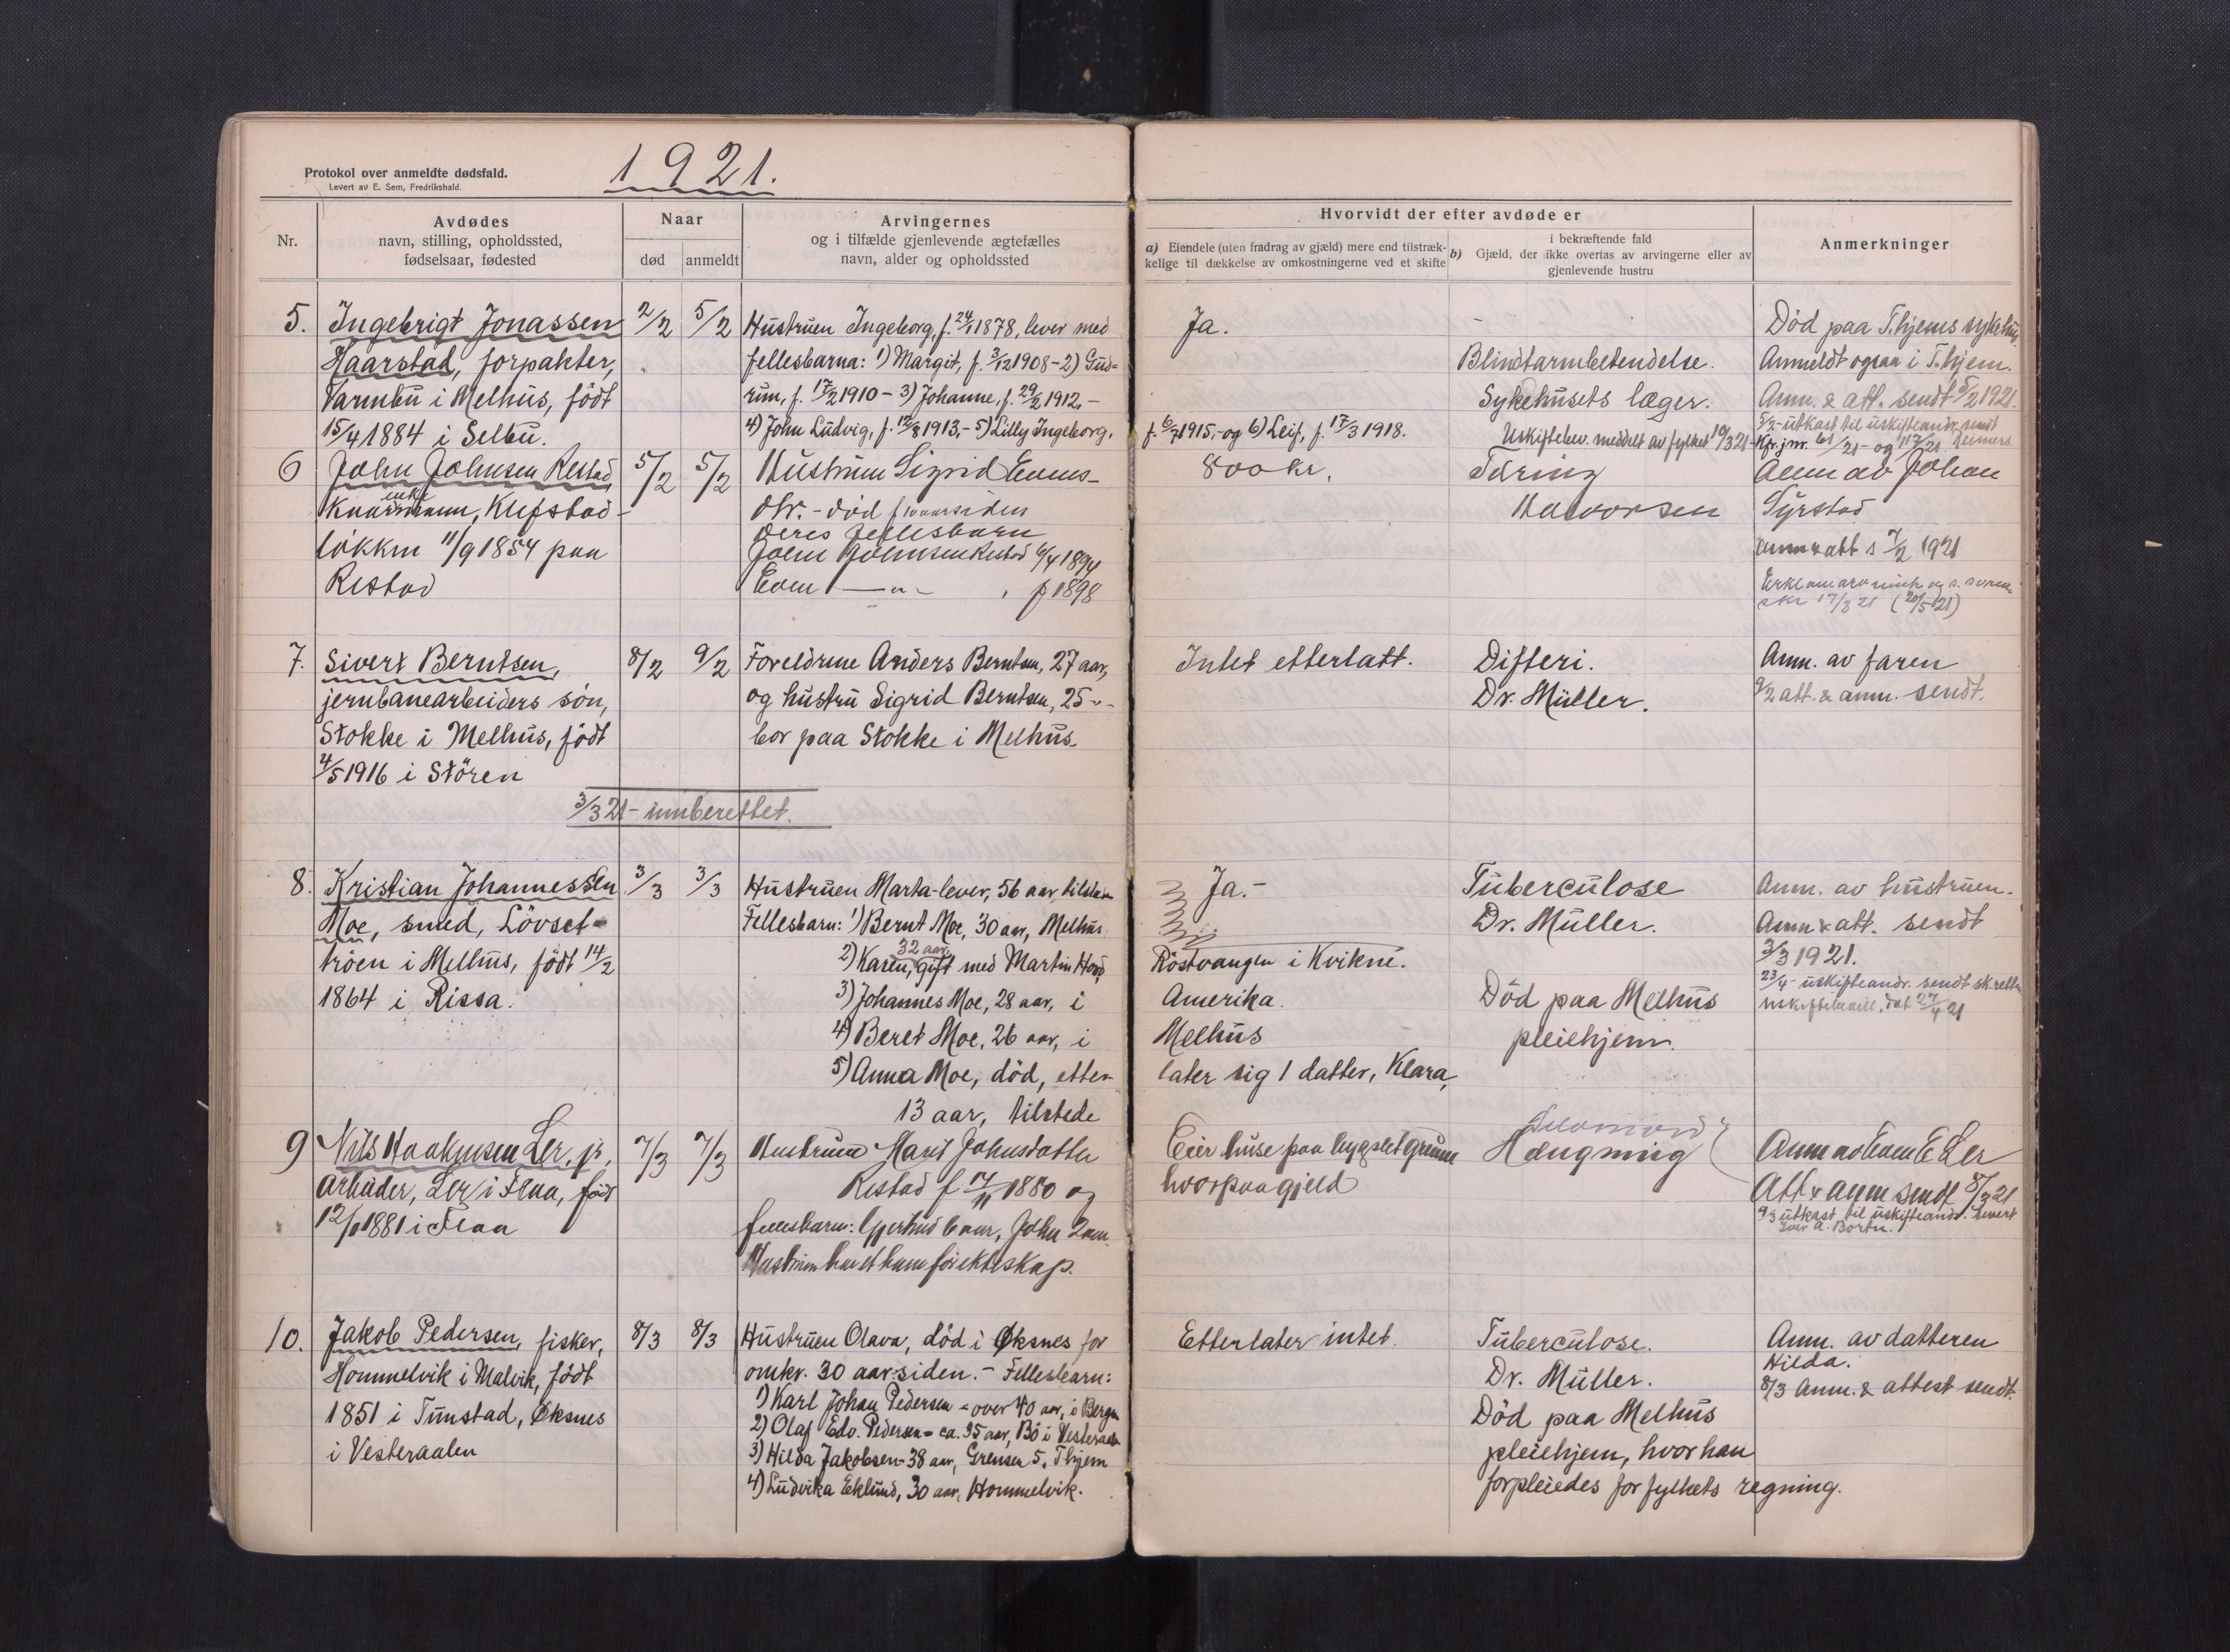 1921.
Protokol over anmeldte dødsfald.
Levert av E. Sem, Fredrikshald.
Nr.
Avdødes
navn, stilling, opholdssted,
fødselsaar, fødested
Naar
død
anmeldt
Arvingernes
og i tilfælde gjenlevende ægtefælles
navn, alder og opholdssted
Hvorvidt der efter avdøde er
a) Eiendele (uten fradrag av gjæld) mere end tilstræk-
kelige til dækkelse av omkostningerne ved et skifte
b) i bekræftende fald
Gjæld, der ikke overtas av arvingerne eller av
gjenlevende hustru
Anmerkninger
5.
Ingebrigt Jonassen
Haarstad, forpakter,
Varmbu i Melhus, født
15/4 1884 i Selbu.
2/2
5/2
Hustruen Ingeborg, f. 24/1 1878, lever med
fellesbarna: 1) Margit, f. 3/12 1908 - 2) Gud=
run, f. 17/2 1910 - 3) Johanne, f. 29/2 1912, -
4) John Ludvig, f. 12/8 1913, - 5) Lilly Ingeborg,
f. 6/7 1915, - og 6) Leif, f. 17/3 1918.
Ja.
-
Blindtarmbetendelse.
Sykehusets læger.
Uskiftebev. meddelt av fylket 10/3 21 -
Død paa T.hjems sykehus,
Anmeldt ogsaa i T.hjem.
Anm. & att. sendt 5/2 1921.
5/2 - utkast til uskifteandr. sendt
Kfr. jnr. 61/21 - og 117/21
6
John Johnsen Restad,
enke
Kaarmann, Klefstad-
løkken 11/9 1854 paa
Restad
5/2
5/2
Hustruen Sigrid Evens-
dtr. - død f 10 aar siden
Deres fellesbarn
John Johnsen Restad 6/4 1894
Even —"— , f 1898
800 kr.
Tæring
Halvorsen
Anm av Johan
Syrstad
anm & att s 7/2 1921
17/3 21 (20/5 21)
7.
Sivert Berntsen,
jernbanearbeiders søn,
Stokke i Melhus, født
4/5 1916 i Støren
8/2
9/2
Foreldrene Anders Berntsen, 27 aar,
og hustru Sigrid Berntsen, 25 -"-
bor paa Stokke i Melhus.
Intet etterlatt.
Difteri.
Dr. Müller.
Anm. av faren
9/2 att. & anm. sendt.
3/3 21 - innberettet.
8.
Kristian Johannessen
Moe, smed, Løvset-
trøen i Melhus, født 14/2
1864 i Rissa.
3/3
3/3
Hustruen Marta - lever, 56 aar, tilstede
Fellesbarn: 1) Bernt Moe, 30 aar, Melhus
32 aar
2) Karen, gift med Martin Hov,
Røstvangen i Kvikne.
3) Johannes Moe, 28 aar, i
Amerika.
4) Beret Moe, 26 aar, i
Melhus
5) Anna Moe, død, etter-
later sig 1 datter, Klara,
13 aar, tilstede
Ja.-
Tuberculose
Dr. Müller.
Død paa Melhus
pleiehjem.
Anm. av hustruen.
Anm & att. sendt
3/3 1921.
23/4 - uskifteandr. sendt sk.retten
dat 27/4 21
9
Nils Haakensen Ler, jr,
Arbeider, Ler i Flaa, født
12/1 1881 i Flaa
7/3
7/3
Hustruen Marit Johnsdatter
Restad f 14/11 1880 og
fellesbarn: Gjertrud 6 aar, John 2 aar.
Hustruen har et barn før ekteskap.
Eier huse paa bygslet grunn
hvorpaa gjeld
Selvmord
Hængning
Anm av Even E Ler
Att & anm sendt 8/3 21
9/3 utkast til uskifteandr. levert
Iver A. Borten.
10.
Jakob Pedersen, fisker,
Hommelvik i Malvik, født
1851 i Tunstad, Øksnes
i Vesteraalen
8/3
8/3
Hustruen Olava, død i Øksnes for
omkr. 30 aar siden. - Fellesbarn:
1) Karl Johan Pedersen - over 40 aar, i Bergen
2) Olaf Edv. Pedersen - ca. 35 aar, Bø i Vesteraalen
3) Hilda Jakobsen - 38 aar, Grensen 5, T.hjem
4) Ludvika Eklund, 30 aar, Hommelvik.
Etterlater intet.
Tuberculose.
Dr. Müller.
Død paa Melhus
pleiehjem, hvor han
forpleiedes for fylkets regning.
Anm. av datteren
Hilda.
8/3 Anm. & attest sendt.